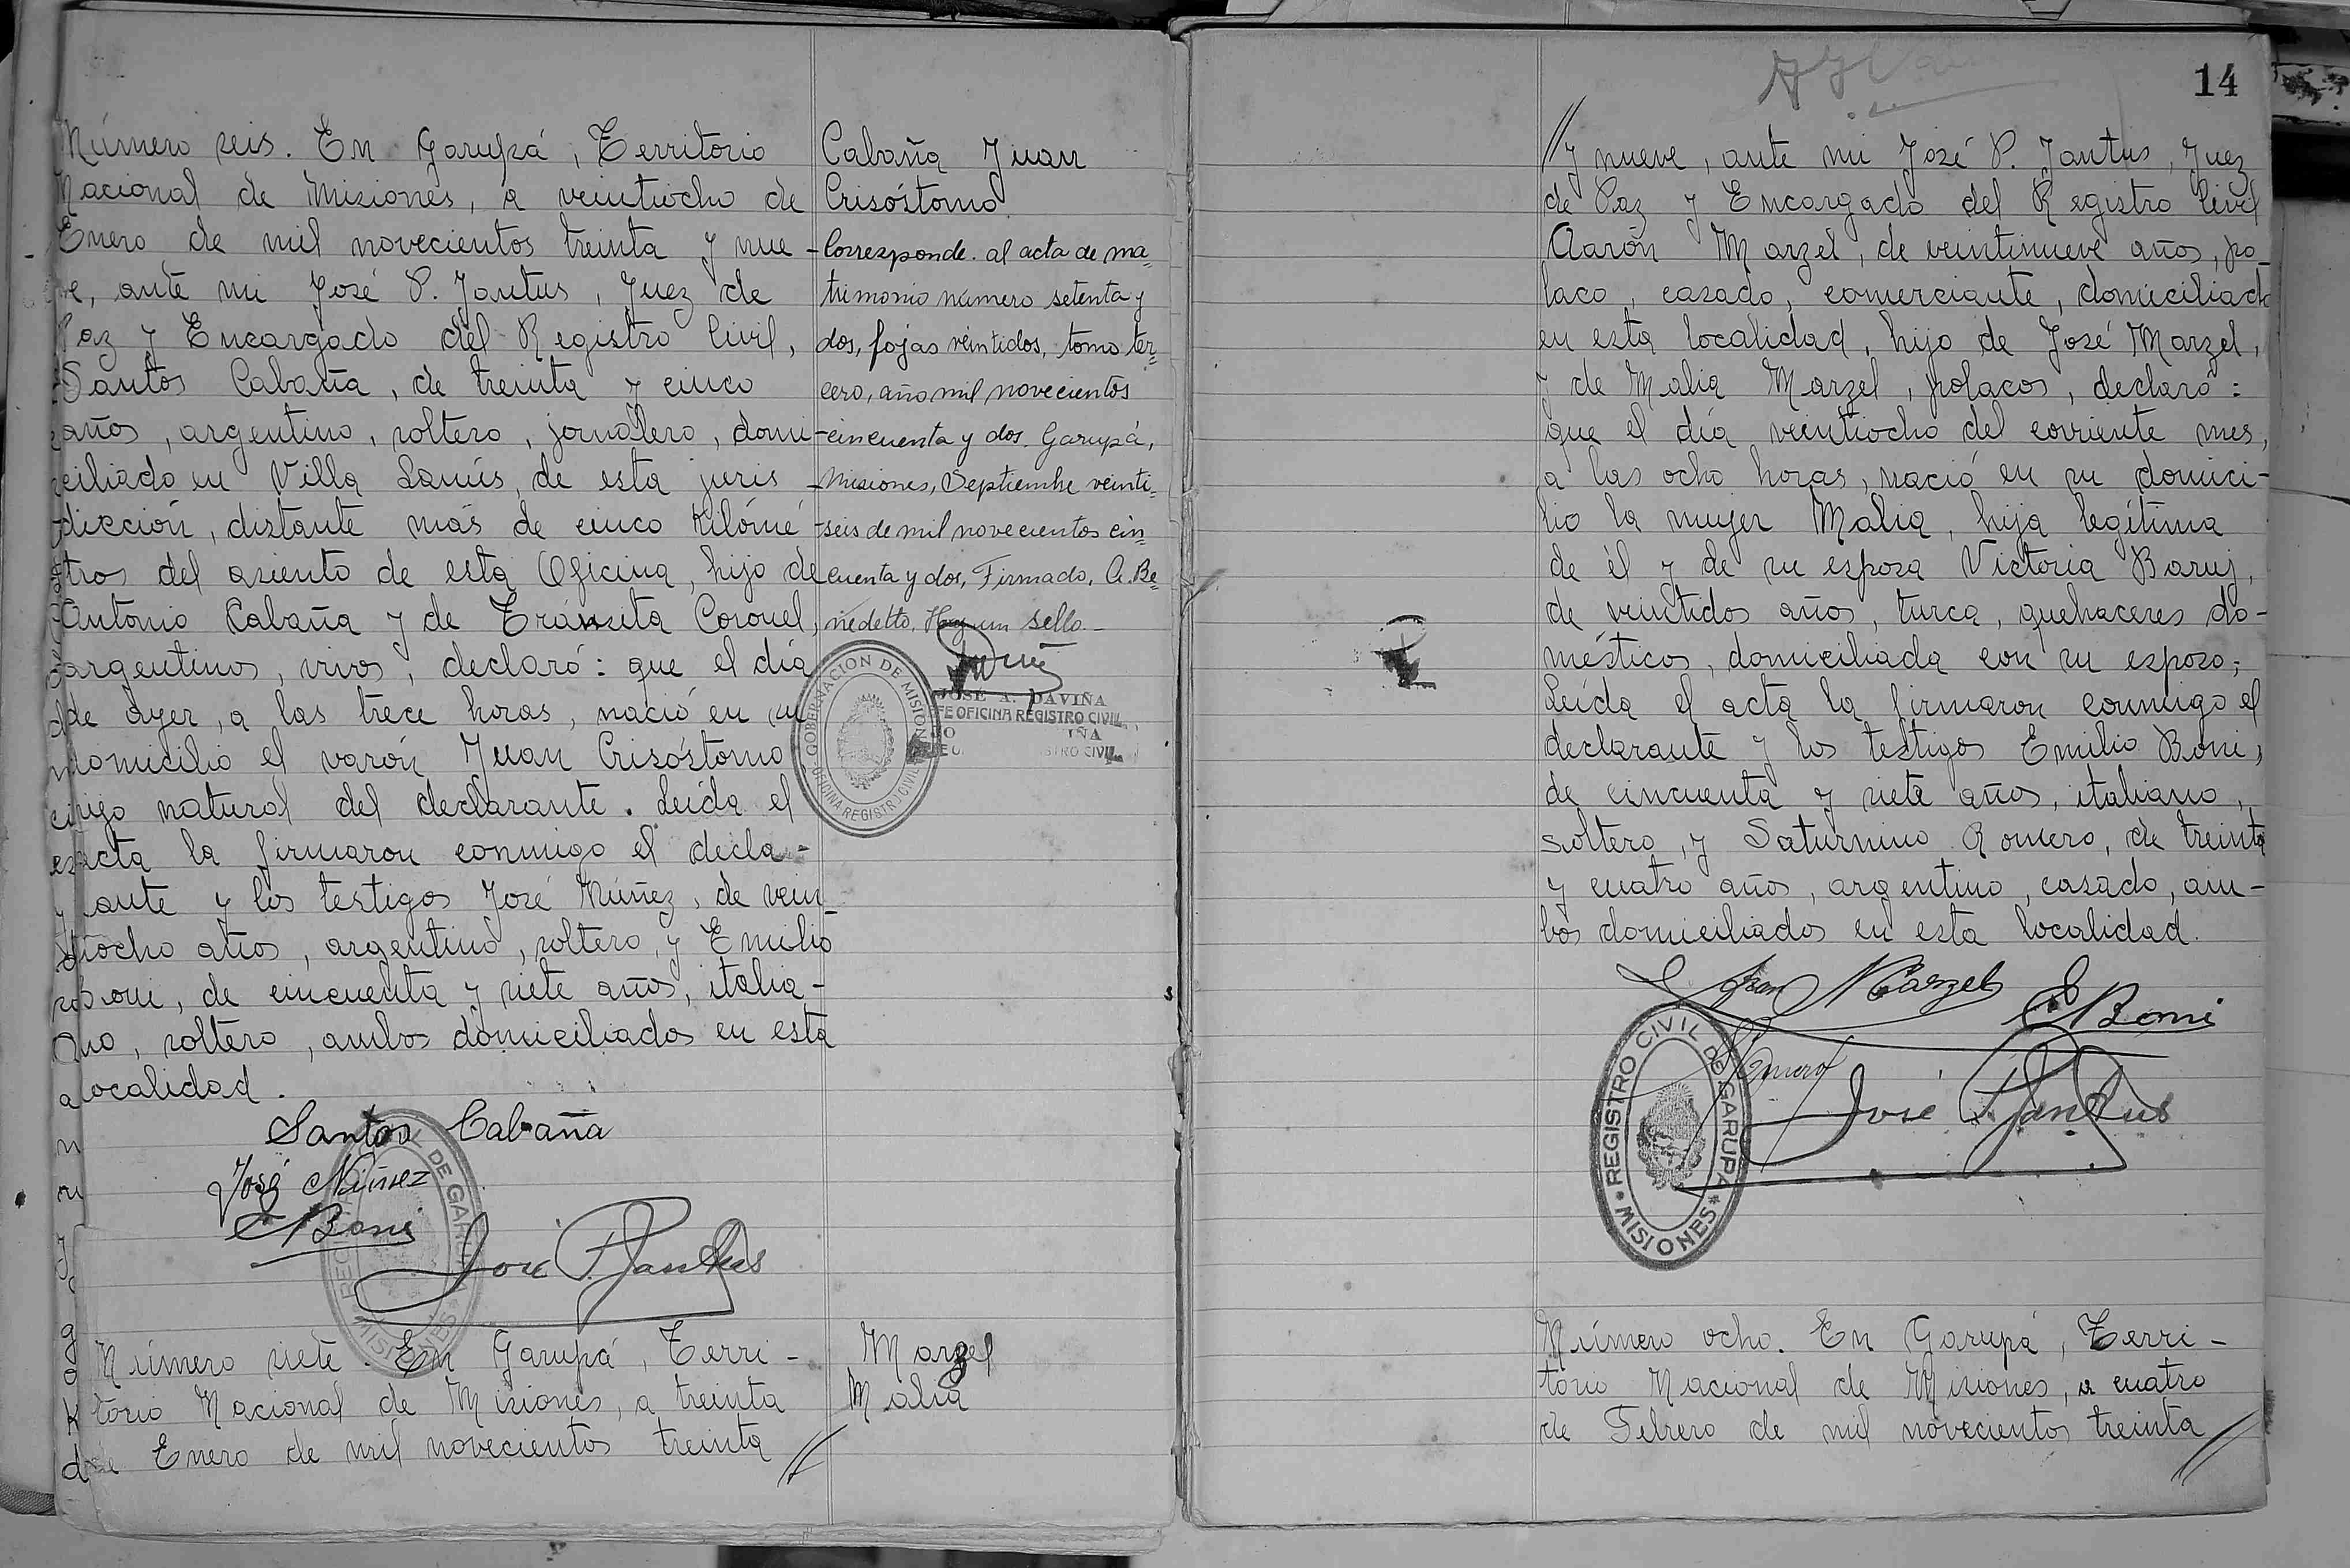 Número seis. En Garupá, Territorio
Nacional de Misiones, a veintiocho de
Enero de mil novecientos treinta y nue-
ve, ante mi José P. Jantus, Juez de
Paz y Encargado del Registro Civil,
Santos Cabaña, de treinta y cinco
años, argentino, soltero, jornalero, domi-
ciliado en Villa Lanús, de esta juris-
dicción, distante más de cinco kilóme-
tros del asiento de esta Oficina, hijo de
Antonio Cabaña y de Tránsita Coronel,
argentinos, vivos, declaró: que el día
de ayer, a las trece horas, nació en su
domicilio el varón Juan Crisóstomo
hijo natural del declarante. Leída el
acta la firmaron conmigo el decla-
rante y los testigos José Núñez, de vein-
tiocho años, argentino, soltero, y Emilio
Boni, de cincuenta y siete años, italia-
no, soltero, ambos domiciliados en esta
localidad.
Santos Cabaña
José Núñez
E Boni
José P. Jantus
DE GARUPA
MISIONES
Número siete. En Garupá, Terri-
torio Nacional de Misiones, a treinta
de Enero de mil novecientos treinta //
Cabaña Juan
Crisóstomo
Corresponde al acta de ma-
trimonio número setenta y
dos, fojas veintidos, tomo ter-
cero, año mil novecientos
cincuenta y dos. Garupá,
Misiones, Septiembre veinti-
seis de mil novecientos cin-
cuenta y dos, Firmado, A. Be-
nedetto, Hay un sello.-
GOBERNACION DE MISIONES
OFICINA REGISTRO CIVIL
JOSÉ A. DAVIÑA
JEFE OFICINA REGISTRO CIVIL
Marzel
Malia
14
// y nueve, ante mi José P. Jantus, Juez
de Paz y Encargado del Registro Civil
Aarón Marzel, de veintinueve años, po-
laco, casado, comerciante, domiciliado
en esta localidad, hijo de José Marzel,
y de Malia Marzel, polacos, declaró:
que el día veintiocho del corriente mes,
a las ocho horas, nació en su domici-
lio la mujer Malia, hija legítima
de él y de su esposa Victoria Baruj,
de veintidos años, turca, quehaceres do-
mésticos, domiciliada con su esposo;
Leída el acta la firmaron conmigo el
declarante y los testigos Emilio Boni,
de cincuenta y siete años, italiano,
soltero, y Saturnino Romero, de treinta
y cuatro años, argentino, casado, am-
bos domiciliados en esta localidad.
Aron Marzel
E Boni
S Romero
José P. Jantus
REGISTRO CIVIL DE GARUPA
* MISIONES *
Número ocho. En Garupá, Terri-
torio Nacional de Misiones, a cuatro
de Febrero de mil novecientos treinta //